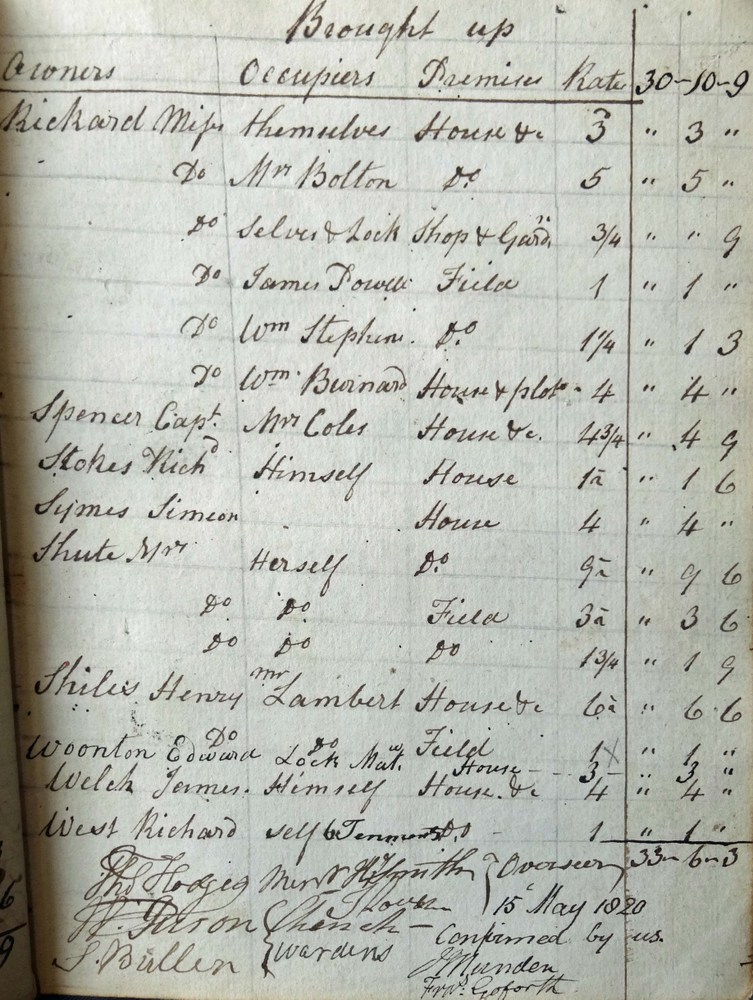 Brought up
Owners Occupiers Premises Rate 30-10-9
Rickard Miss themselves House &c 3 " 3 "
Do Mrs Bolton Do 5 " 5 "
Do Selves & Lock Shop & Gardn 3/4 " " 9
Do James Powell Field 1 " 1 "
Do Wm Stephens Do 1 1/4 " 1 3
Do Wm Burnard House & plot - 4 " 4 "
Spencer Capt. Mrs Coles House &c. 4 3/4 " 4 9
Stokes Richd Himself House 1 1/2 " 1 6
Symes Simeon House 4 " 4 "
Shute Mrs Herself Do 9 1/2 " 9 6
Do Do Field 3 1/2 " 3 6
Do Do Do 1 3/4 " 1 9
Shiles Henry Mr Lambert House &c 6 1/2 " 6 6
Do Do Field 1 " 1 "
Woonton Edward Lock Mat. House - 3 - " 3 "
Welch James. Himself House. &c 4 " 4 "
West Richard self & Do - 1 " 1 "
33-6-3
Thos Hodges Smith } Overseers
W. Gerson { Church 15 May 1820
J. Bullen Wardens Confirmed by us.
J Munden
Frs. Goforth